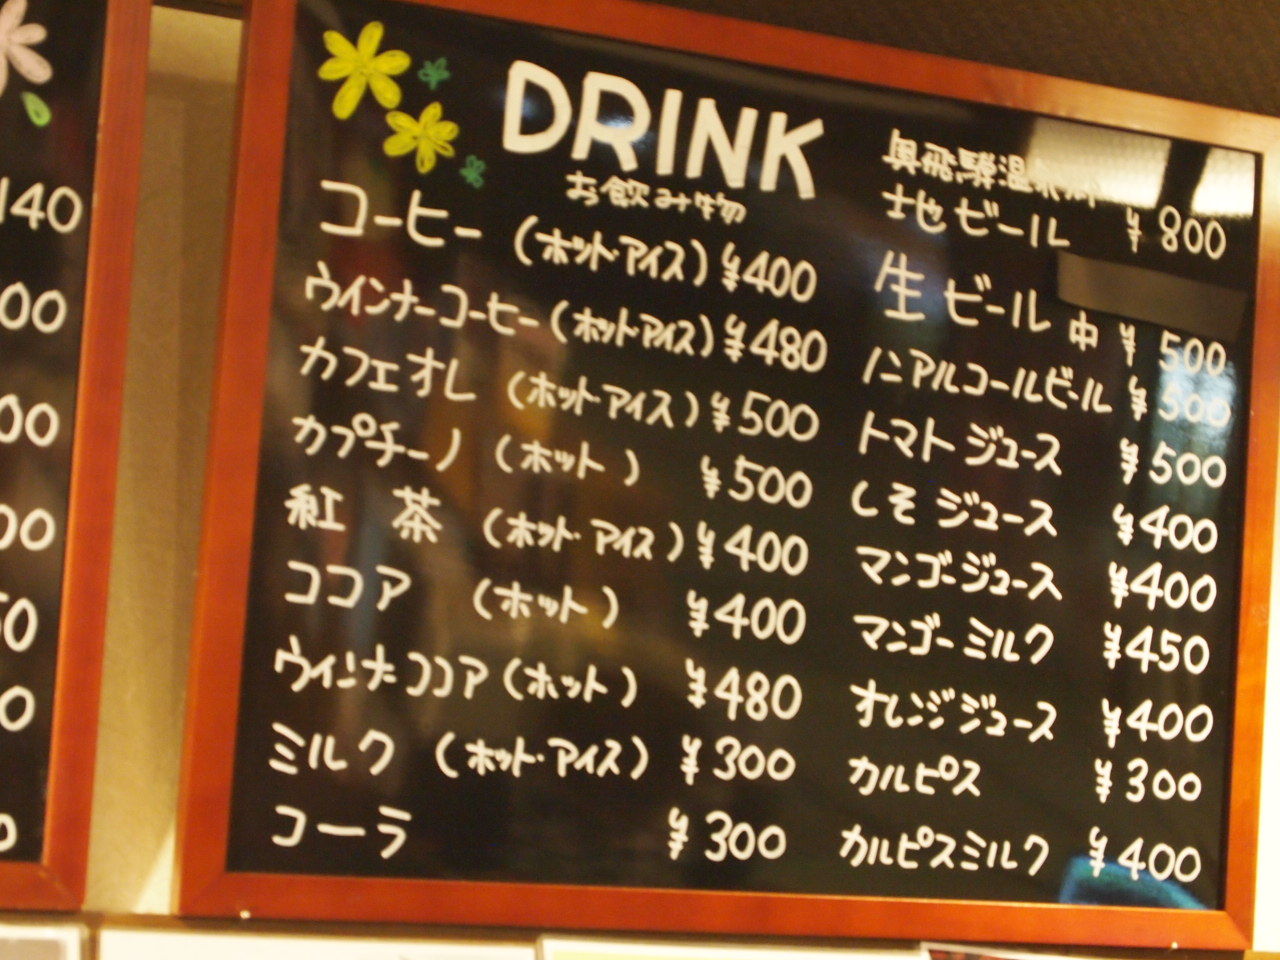 140
00
00
00
50
0
DRINK
お飲み物
コーヒー (ホット・アイス) ¥400
ウインナーコーヒー (ホット・アイス) ¥480
カフェオレ (ホット・アイス) ¥500
カプチーノ (ホット) ¥500
紅 茶 (ホット・アイス) ¥400
ココア (ホット) ¥400
ウインナココア (ホット) ¥480
ミルク (ホット・アイス) ¥300
コーラ ¥300
奥飛騨温泉郷
地ビール ¥800
生ビール 中 ¥500
ノンアルコールビール ¥500
トマトジュース ¥500
しそジュース ¥400
マンゴージュース ¥400
マンゴーミルク ¥450
オレンジジュース ¥400
カルピス ¥300
カルピスミルク ¥400